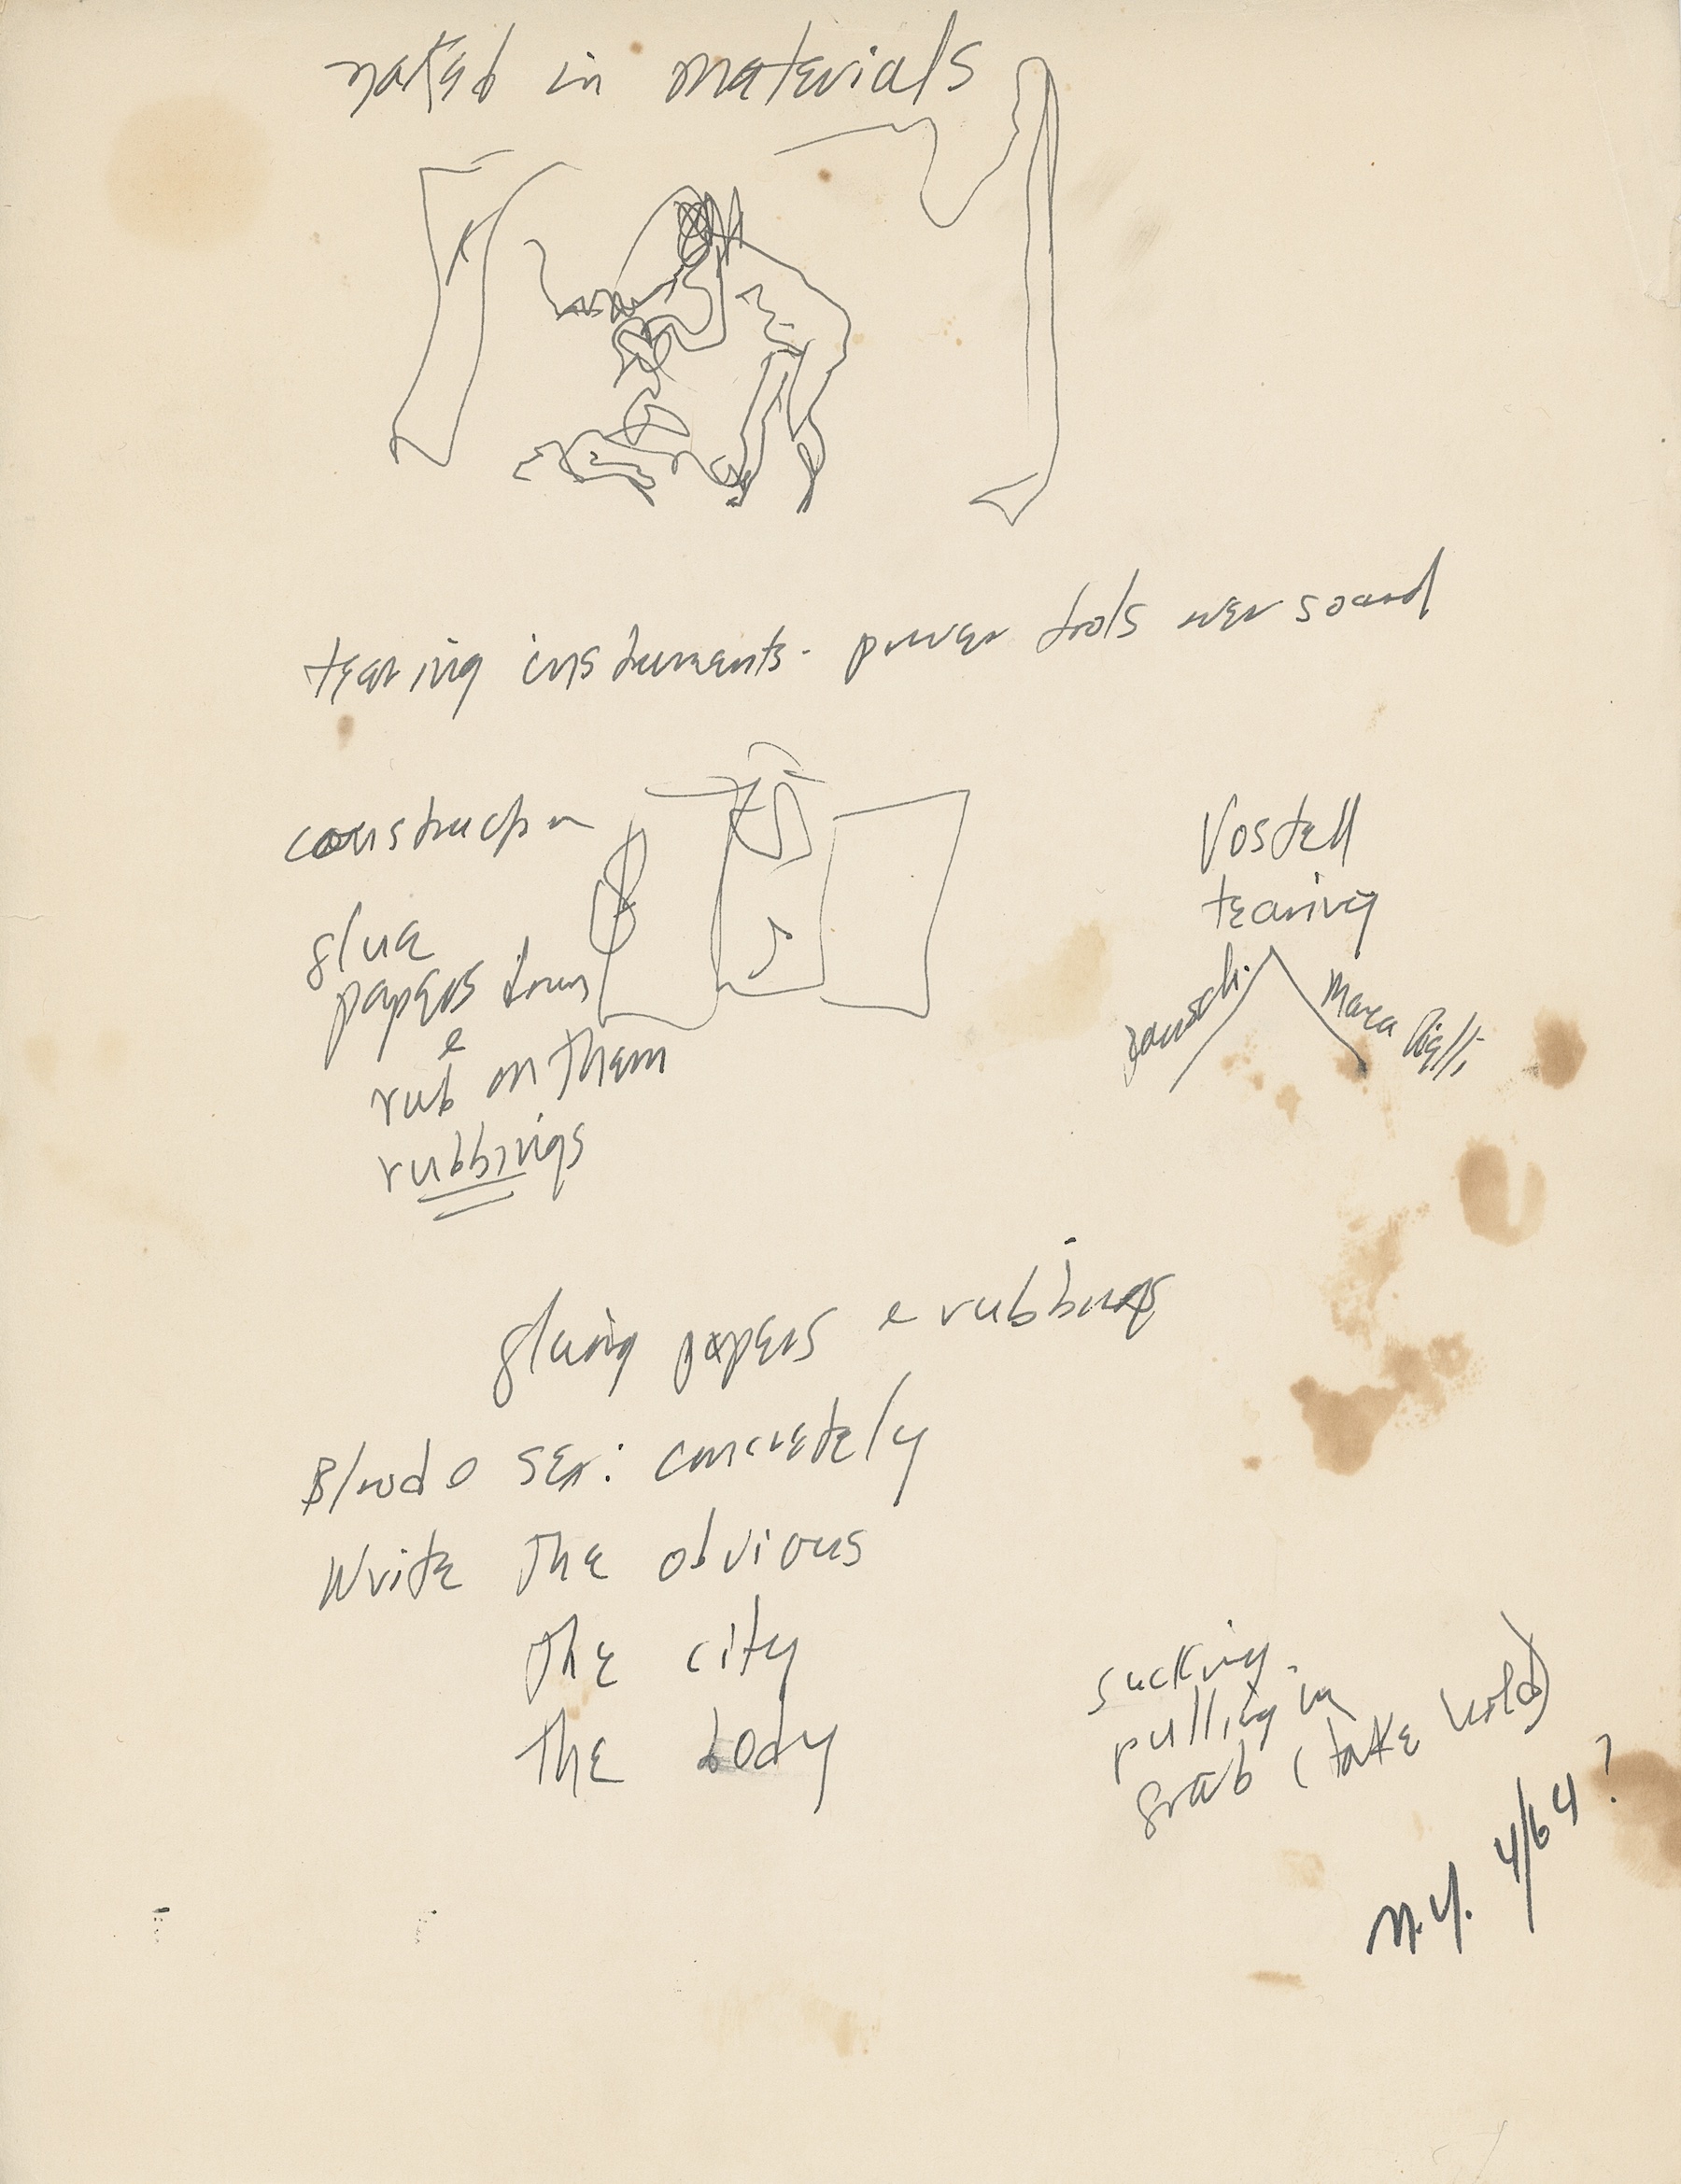 naked in materials
tearing instruments - power tools over sound
construction
glue
papers down
e
rub on them
rubbings
Vostell
tearing
Marca
gluing papers e rubbings
Blood O sex: concretely
Write the obvious
the city
the body
sucking.
pulling in
grab (take hold)
N.Y. 4/64?